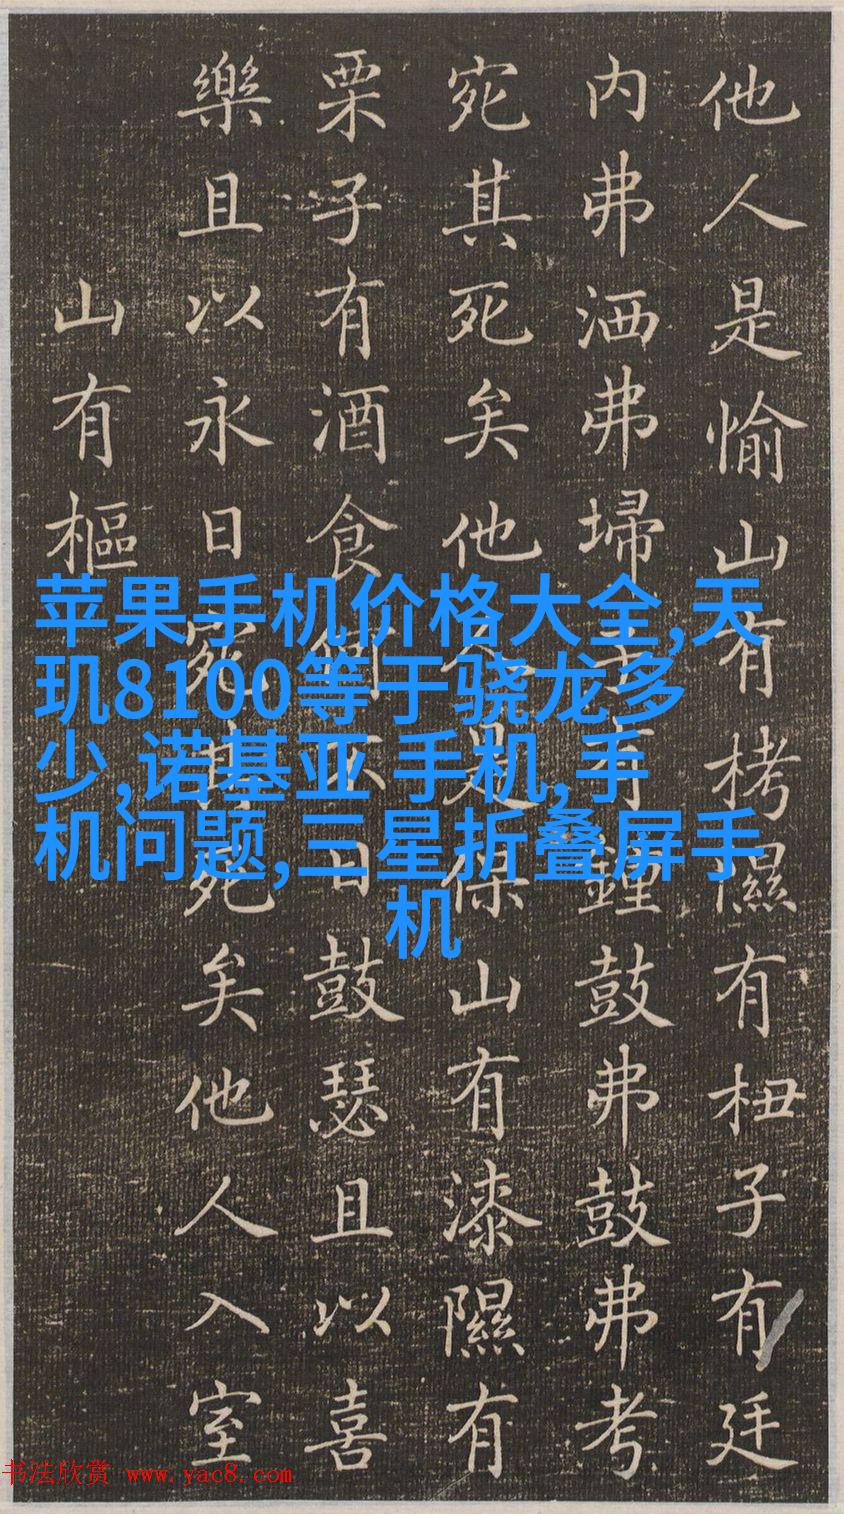 他人是愉山有栲隰有杻子有廷
内弗洒弗埽子有鍾鼓弗鼓弗考
宛其死矣他人是保山有漆隰有
栗子有酒食何不日鼓瑟且以喜
樂且以永日宛其死矣他人入室
山有樞
苹果手机价格大全,天
玑8100等于骁龙多
少,诺基亚 手机,手
机问题,三星折叠屏手
机
书法欣赏 www.yac8.com